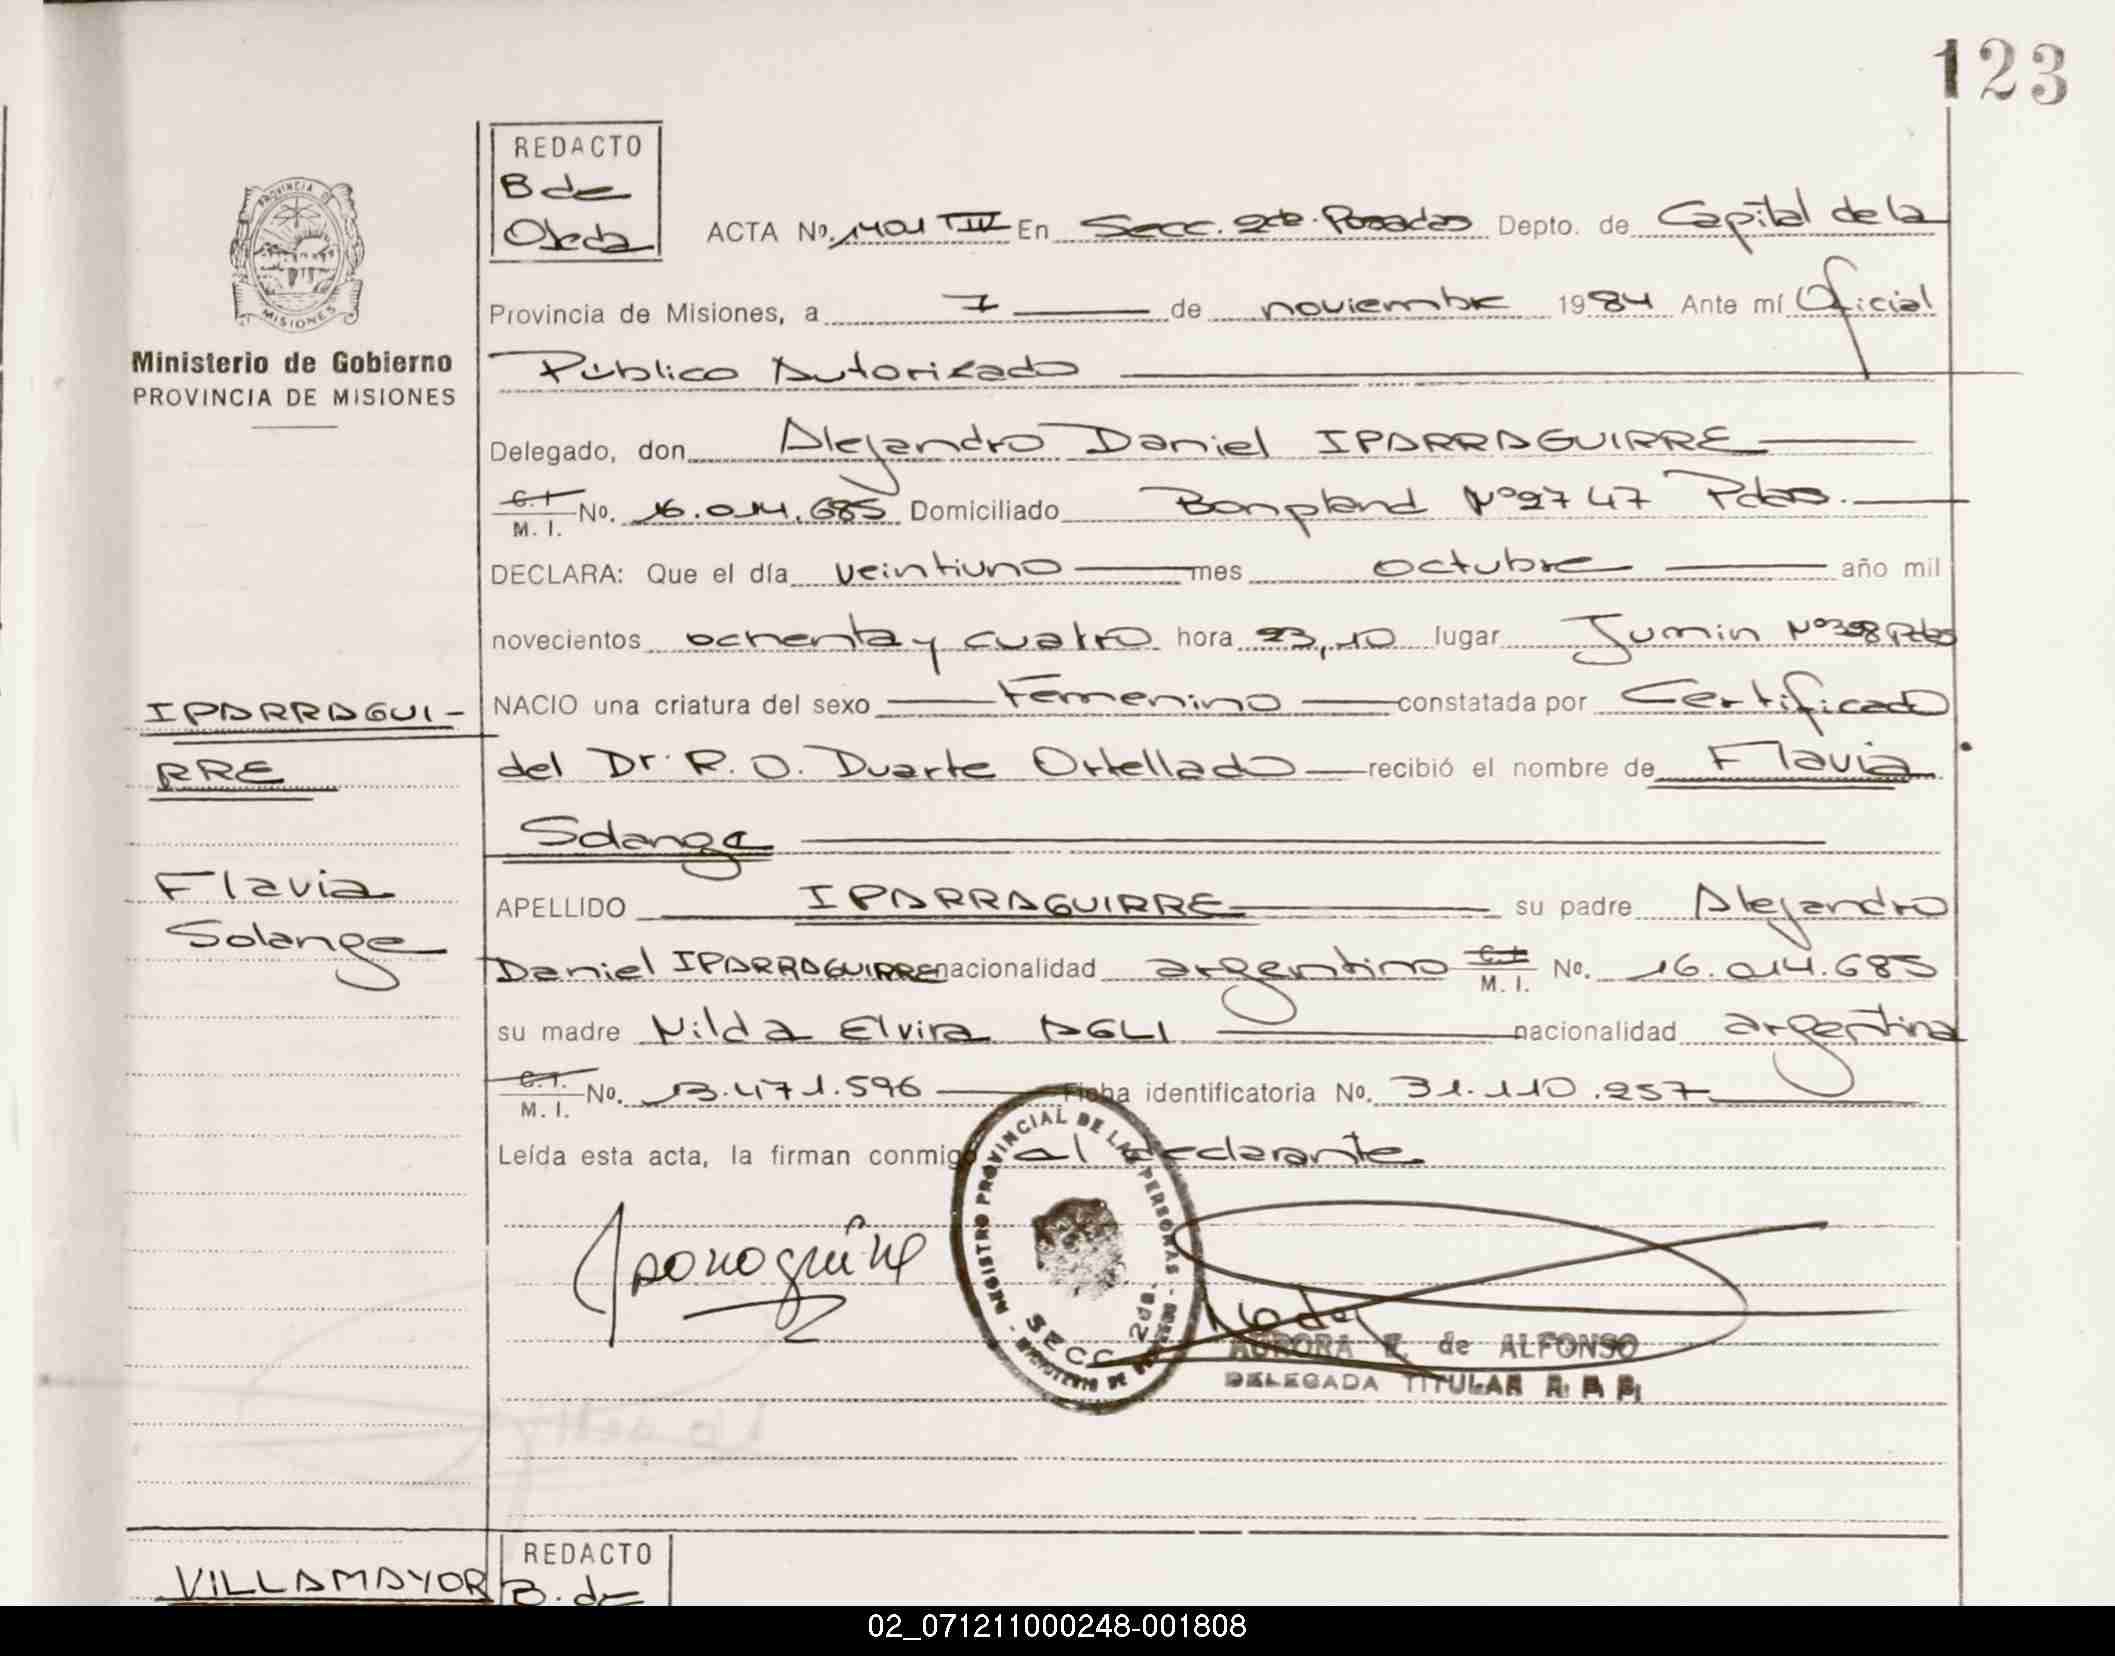 123
REDACTO
B de
Ojeda
ACTA No. 1401 TIV En Secc. 2da. Posadas Depto. de Capital de la
Provincia de Misiones, a 7 de noviembre 1984 Ante mí Oficial
Público Autorizado
Delegado, don Alejandro Daniel IPARRAGUIRRE
C. I. M. I. No. 16.014.685 Domiciliado Bonpland Nº 2747 Pdas.
DECLARA: Que el día veintiuno mes octubre año mil
novecientos ochenta y cuatro hora 23,10 lugar Junin Nº Pdas
NACIO una criatura del sexo Femenino constatada por Certificado
del Dr. R. O. Duarte Ortellado recibió el nombre de Flavia
Solange
APELLIDO IPARRAGUIRRE su padre Alejandro
Daniel IPARRAGUIRRE nacionalidad argentino C. I. M. I. No. 16.014.685
su madre Nilda Elvira AGLI nacionalidad argentina
C. I. M. I. No. 13.471.596 Ficha identificatoria No. 31.110.257
Leída esta acta, la firman conmigo el declarante
PROVINCIA DE
MISIONES
Ministerio de Gobierno
PROVINCIA DE MISIONES
IPARRAGUI-
RRE
Flavia
Solange
REGISTRO PROVINCIAL DE LAS PERSONAS
SECC. 2da.
AURORA de ALFONSO
DELEGADA TITULAR R. P. P.
VILLAMAYOR
REDACTO
B. de
02_071211000248-001808